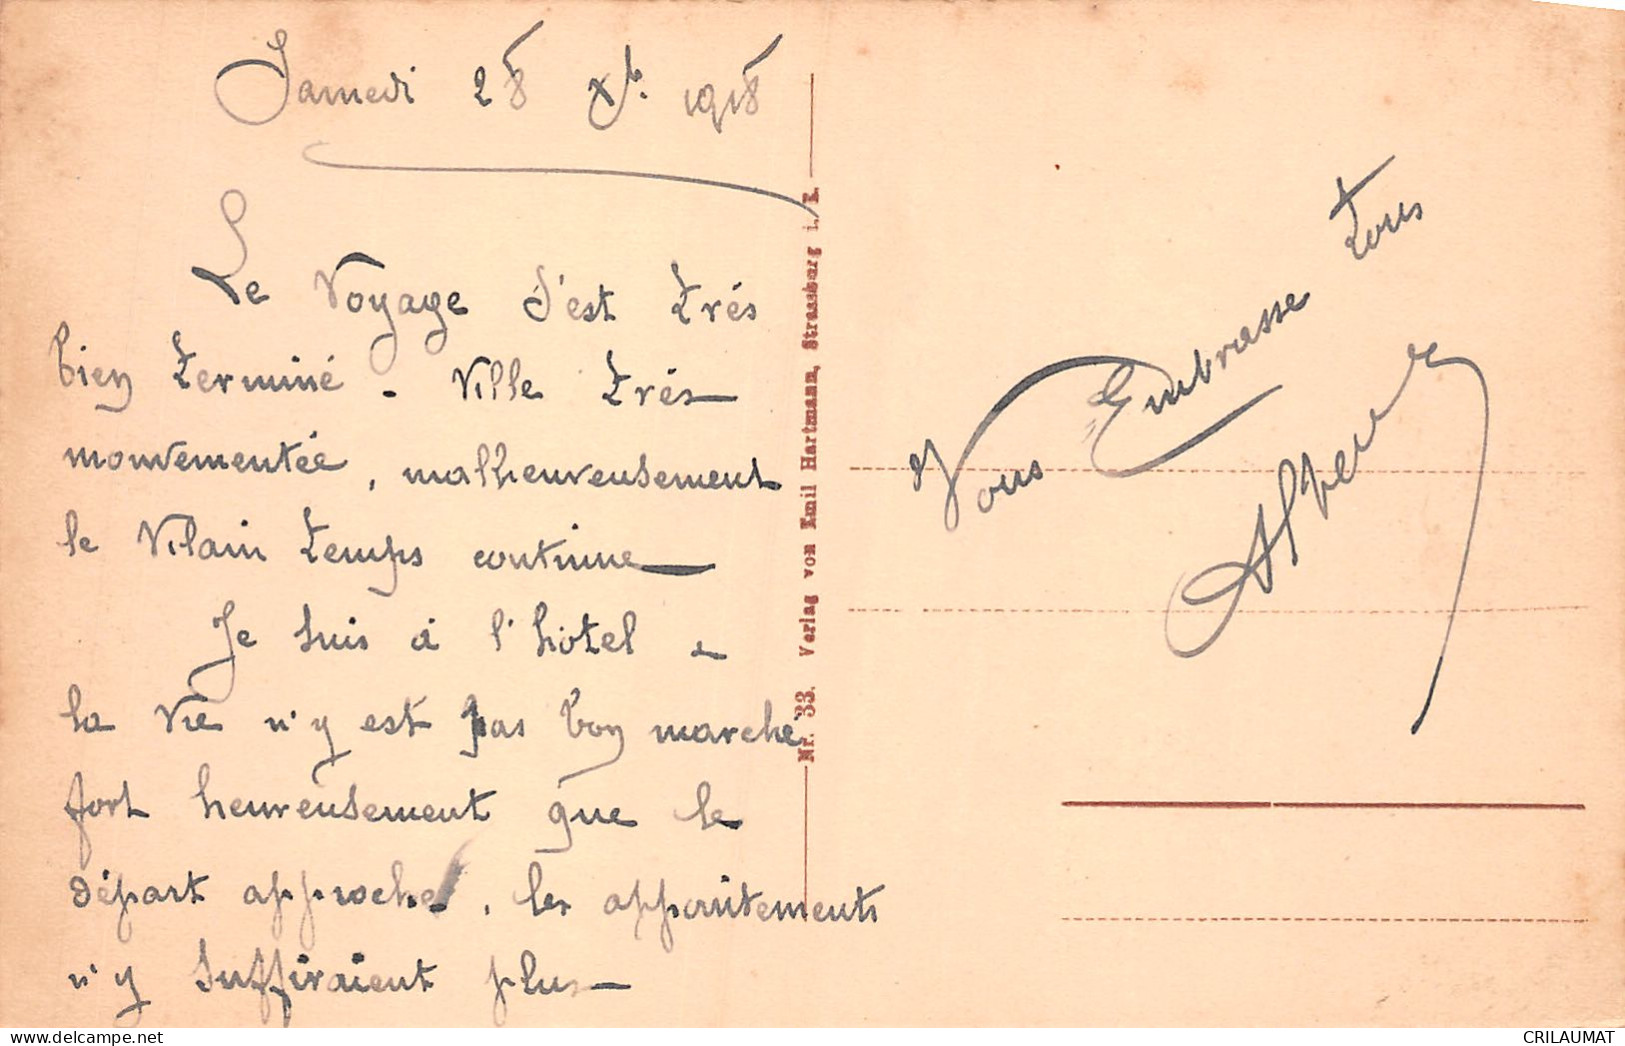 Samedi 28 Xb. 1918
Le Voyage s'est très
bien terminé - Ville très
mouvementée, malheureusement
le Vilain temps continue
Je suis à l'hôtel -
la vie n'y est pas bon marché
fort heureusement que le
départ approche, les appointements
n'y suffiraient plus
Nr. 33. Verlag von Emil Hartmann, Strassburg i. E.
Vous Embrasse tous
CRILAUMAT